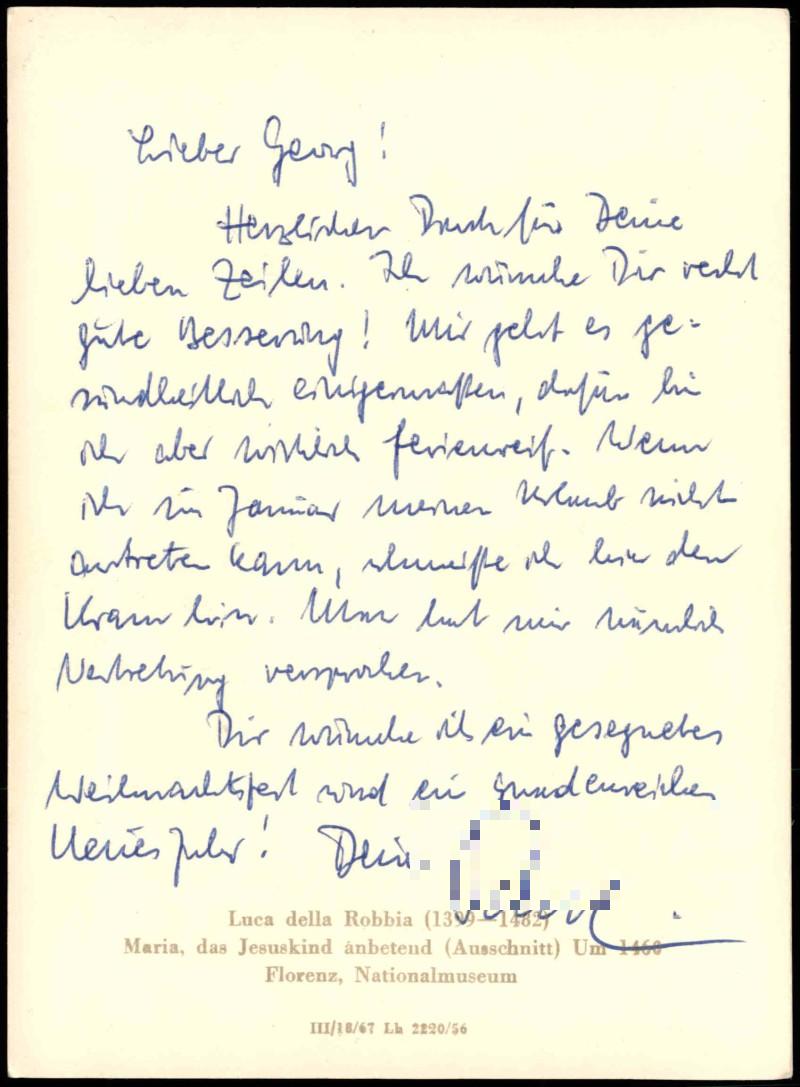 Lieber Georg!
Herzlichen Dank für Deine
lieben Zeilen. Ich wünsche Dir recht
gute Besserung! Mir geht es ge-
sundheitlich einigermaßen, dafür bin
ich aber wirklich ferienreif. Wenn
ich im Januar meinen Urlaub nicht
antreten kann, schmeiße ich hier den
Kram hin. Man hat mir nämlich
Vertretung versprochen.
Dir wünsche ich ein gesegnetes
Weihnachtsfest und ein gnadenreiches
Neues Jahr! Dein
Luca della Robbia (1399—1482)
Maria, das Jesuskind anbetend (Ausschnitt) Um 1460
Florenz, Nationalmuseum
III/18/67 Lh 2220/56